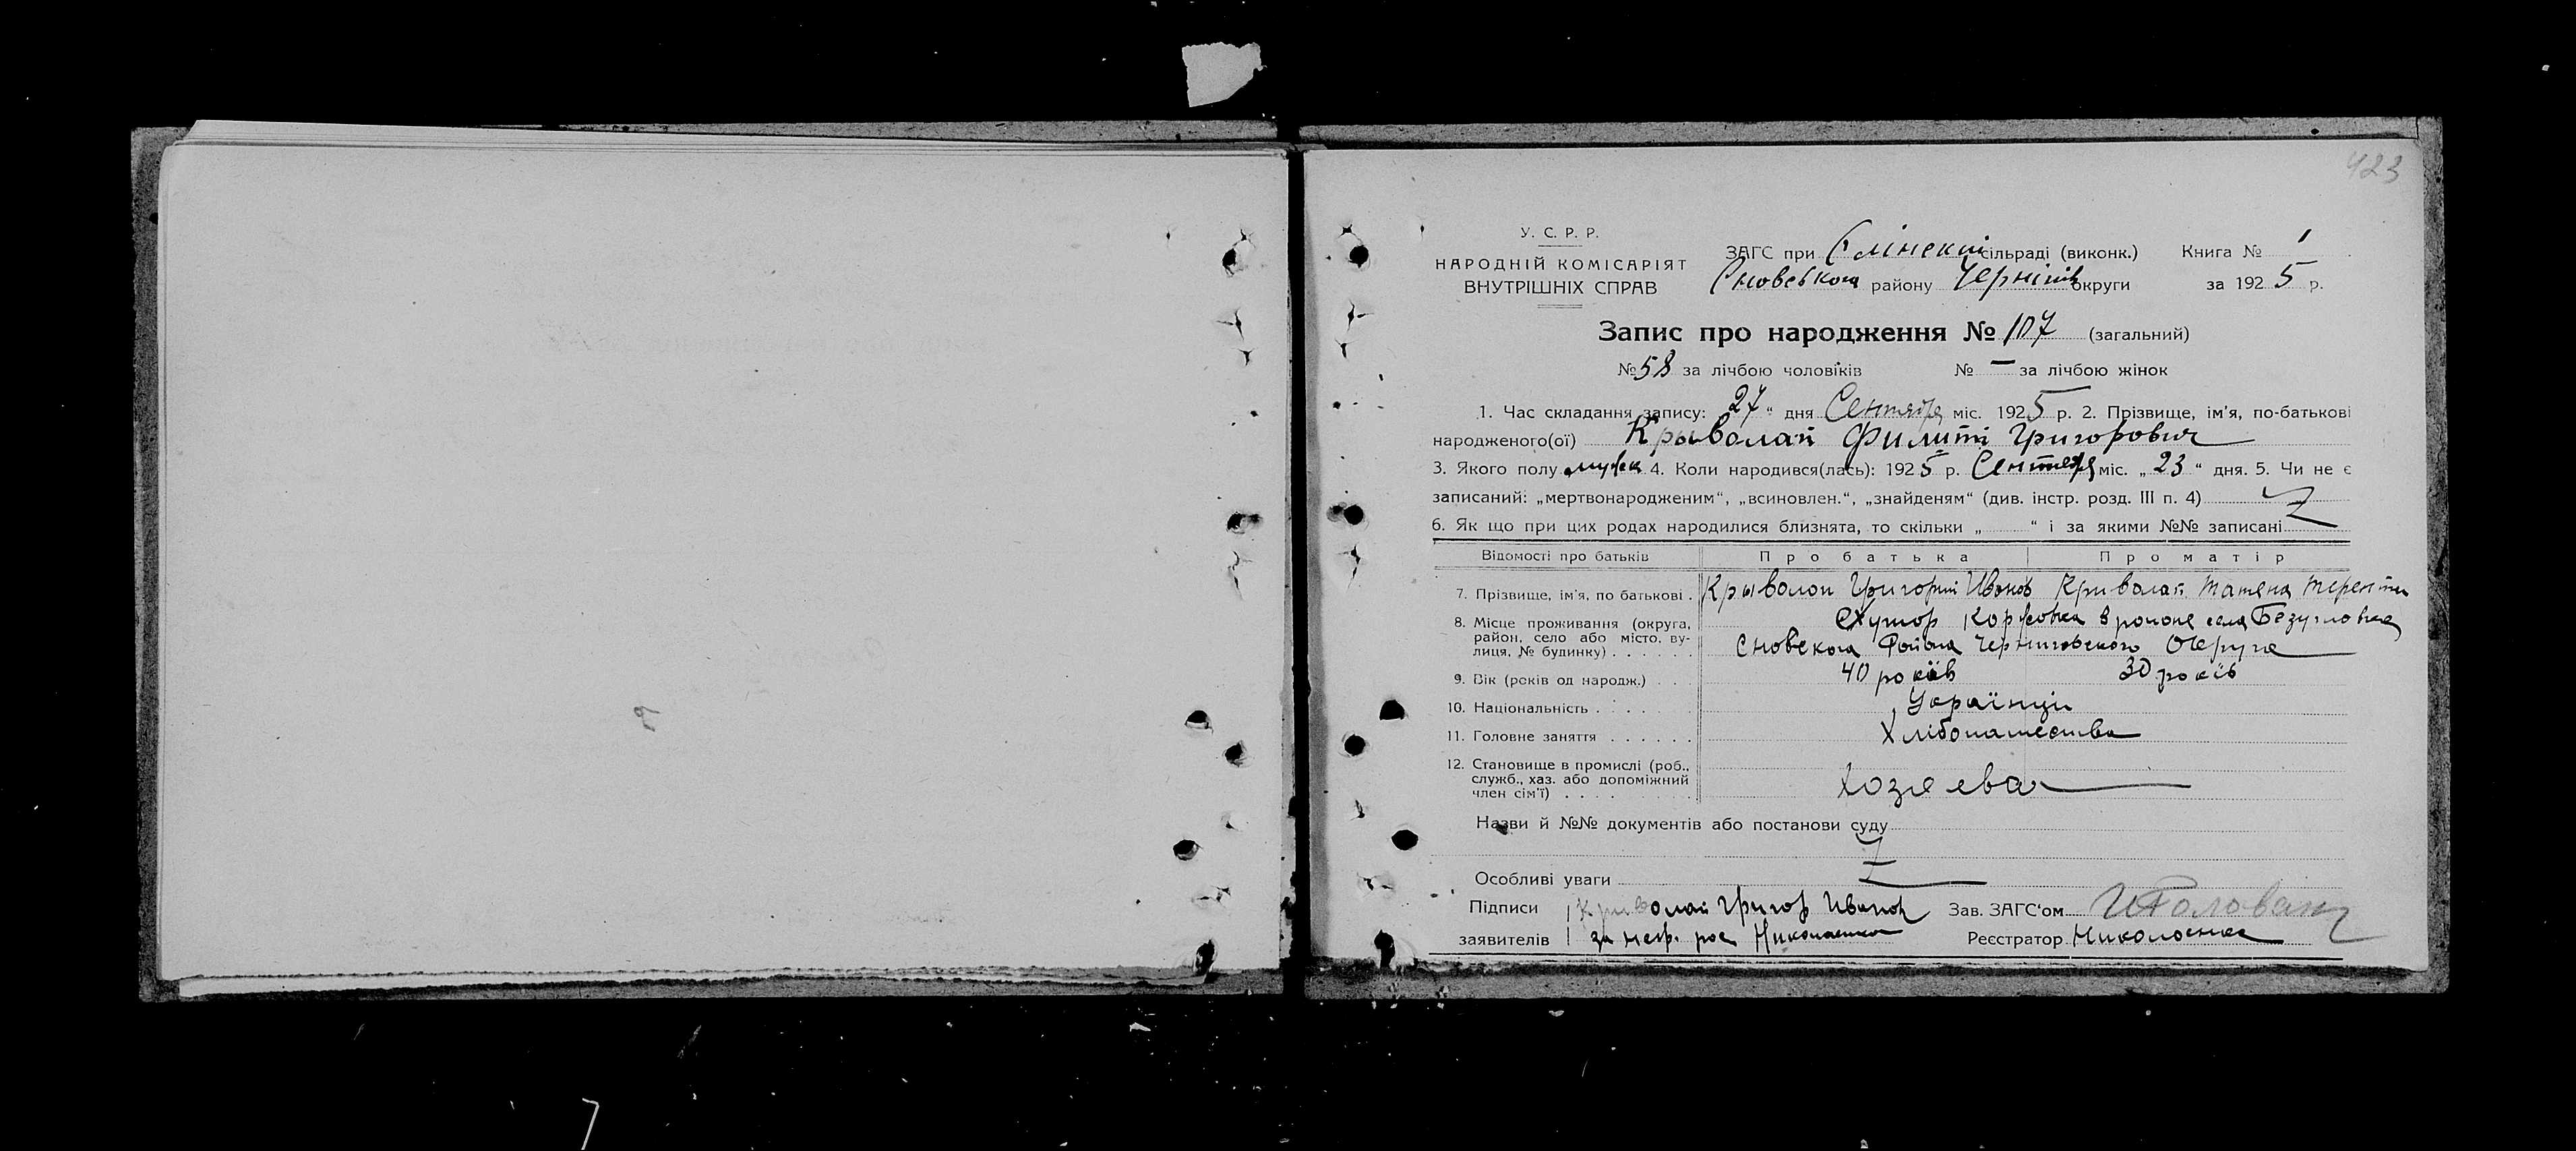 423
У. С. Р. Р.
НАРОДНІЙ КОМІСАРІЯТ
ВНУТРІШНІХ СПРАВ
ЗАГС при сільраді (виконк.) Книга № 1
Сновського району Чернігів округи за 1925 р.
Запис про народження № 107 (загальний)
№ 58 за лічбою чоловіків № — за лічбою жінок
1. Час складання запису: 27 " дня Сентября міс. 1925 р. 2. Прізвище, ім'я, по-батькові
народженого(ої) Крыволап Филип Григорович
3. Якого полу мужск 4. Коли народився(лась): 1925 р. Сентября міс. „ 23 " дня. 5. Чи не є
записаний: „мертвонародженим", „всиновлен.", „знайденям" (див. інстр. розд. III п. 4)
6. Як що при цих родах народилися близнята, то скільки „ " і за якими №№ записані
Відомості про батьків Про батька Про матір
7. Прізвище, ім'я, по батькові . Крыволап Григорий Иванов Криволап Татяна
8. Місце проживання (округа, район, село або місто, вулиця, № будинку) . . . . . . Хутор в районе села Безугловка
Сновского Района Черниговского Округа
9. Вік (років од народж.) . . . 40 років 30 років
10. Національність . . . . . . Українці
11. Головне заняття . . . . . . Хлібопашество
12. Становище в промислі (роб., служб., хаз. або допоміжний член сім'ї) . . . . Хозяева
Назви й №№ документів або постанови суду
Особливі уваги
Підписи Криволап Григор Иванов Зав. ЗАГС'ом
заявителів за негр. рос Николаенко Реєстратор Николаенко